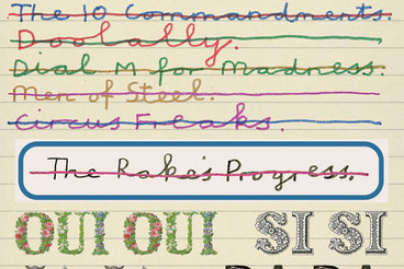 The 10 Commandments.
Doolally.
Dial M for Madness.
Men of Steel.
Circus Freaks.
The Rake's Progress.
OUI OUI SI SI